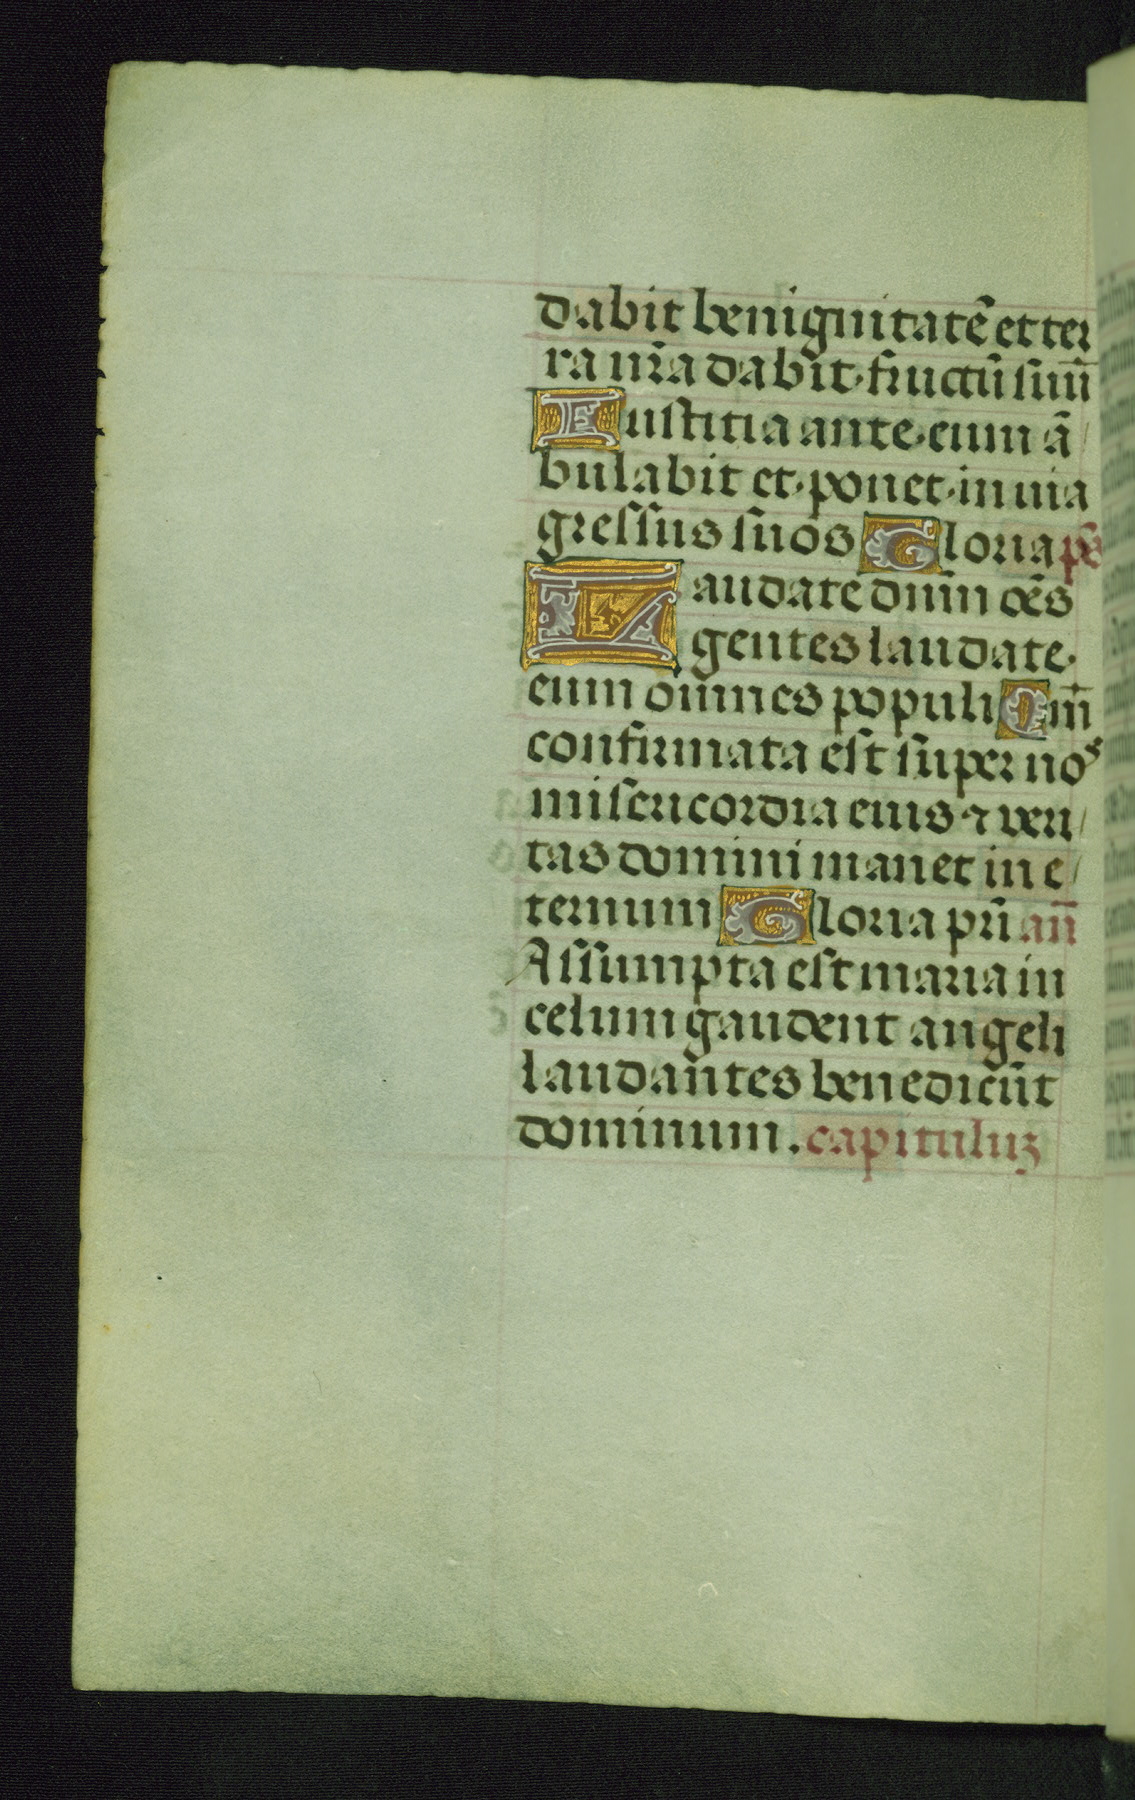 dabit benignitatē et ter
ra nr̄a dabit fructū suū
Iustitia ante eum ā/
bulabit et ponet in uia
gressus suos Gloria ps̄
Laudate dnm̄ oēs
gentes laudate
eum omnes populi Qm̄
confirmata est super nos
misericordia eius ⁊ veri/
tas domini manet in e/
ternum Gloria pr̄i an̄
Assumpta est maria in
celum gaudent angeli
laudantes benedicūt
dominum. capituluꝫ